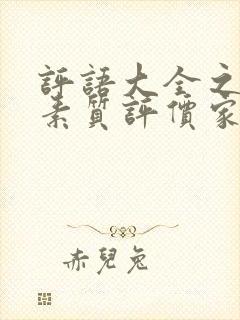 評語大全之
素質評價家
赤兒兔